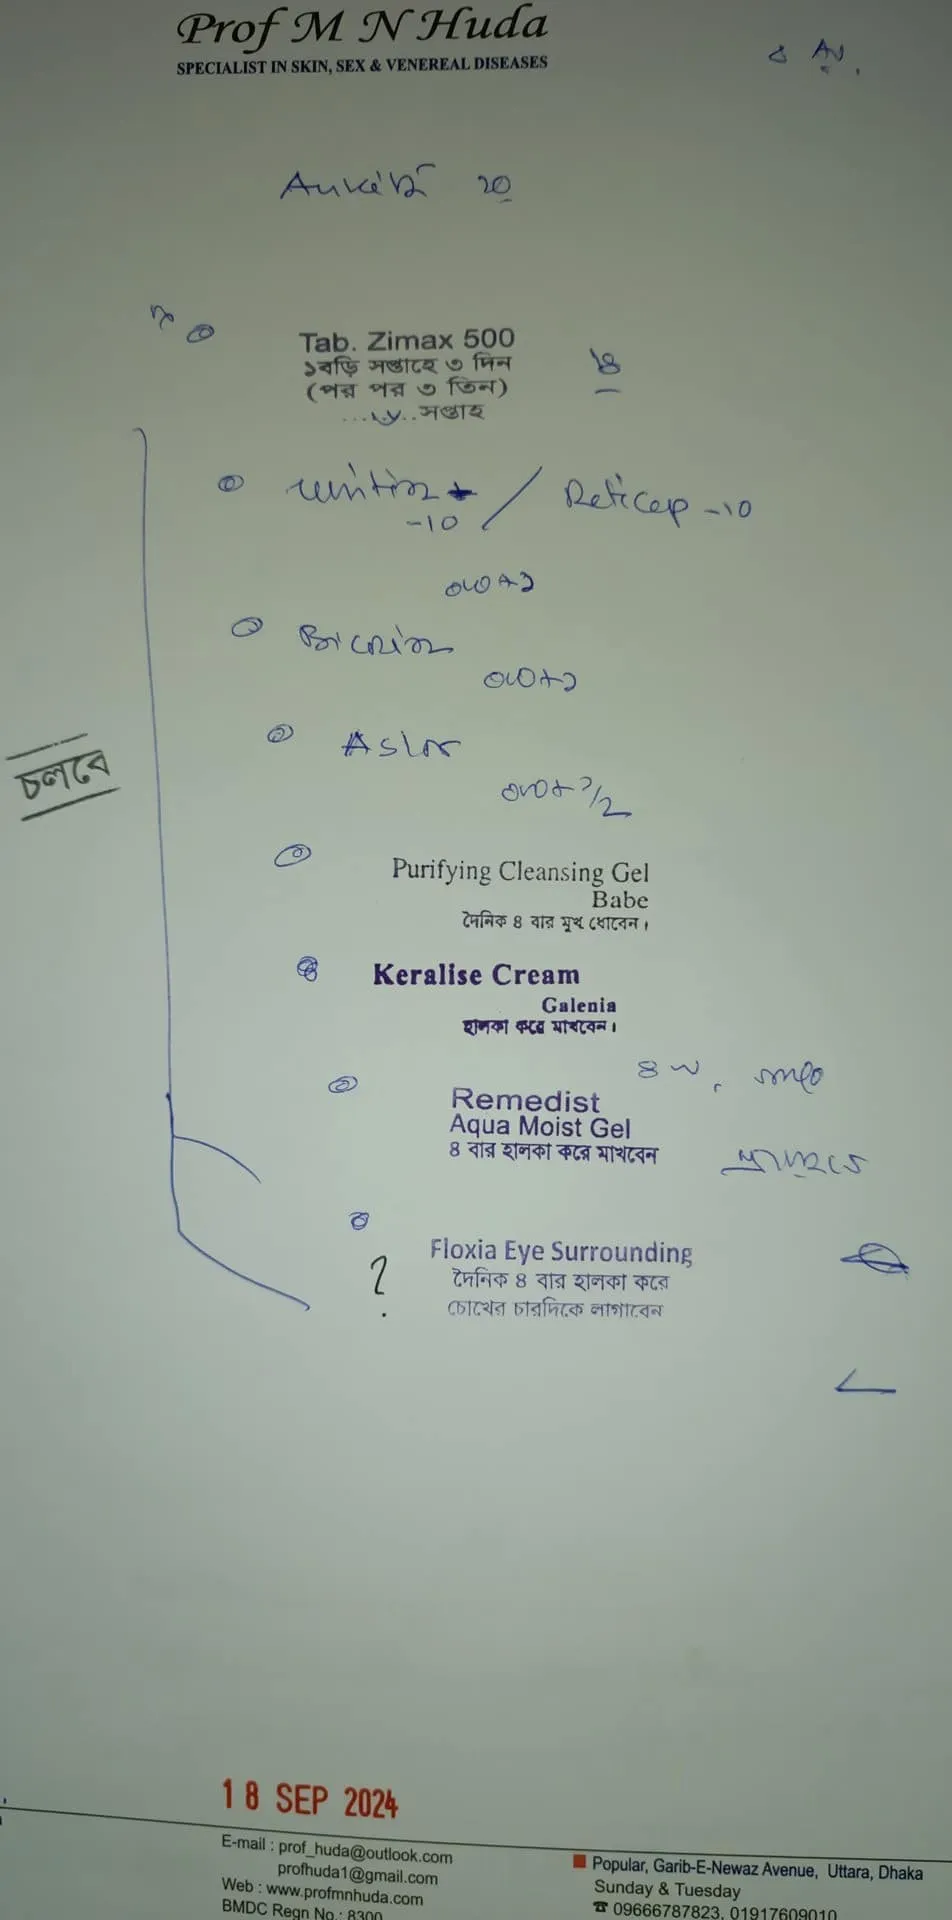 Prof M N Huda
SPECIALIST IN SKIN, SEX & VENEREAL DISEASES
20
Tab. Zimax 500
১বড়ি সপ্তাহে ৩ দিন
(পর পর ৩ তিন)
সপ্তাহ
-10 / Reticap -10
০+০+১
০+০+১
চলবে
Purifying Cleansing Gel
Babe
দৈনিক ৪ বার মুখ ধোবেন।
Keralise Cream
Galenia
হালকা করে মাখবেন।
Remedist
Aqua Moist Gel
৪ বার হালকা করে মাখবেন
Floxia Eye Surrounding
? দৈনিক ৪ বার হালকা করে
চোখের চারদিকে লাগাবেন
18 SEP 2024
E-mail : prof_huda@outlook.com
profhuda1@gmail.com
Web : www.profmnhuda.com
BMDC Regn No.: 8300
Popular, Garib-E-Newaz Avenue, Uttara, Dhaka
Sunday & Tuesday
☎ 09666787823, 01917609010